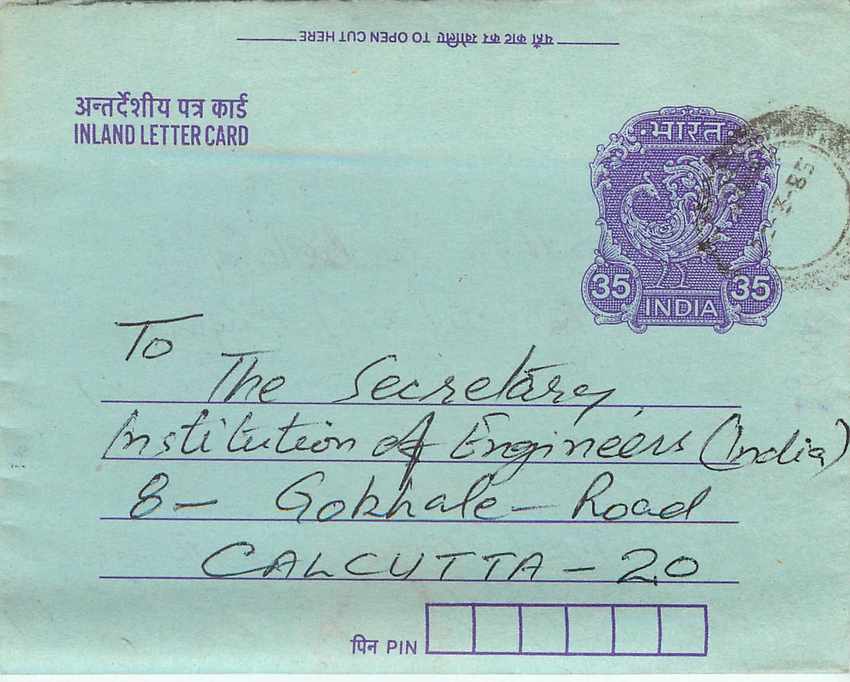 यहाँ काट कर खोलिए TO OPEN CUT HERE
अन्तर्देशीय पत्र कार्ड
INLAND LETTER CARD
भारत
35 INDIA 35
To
The Secretary,
Institution of Engineers (India)
8- Gokhale-Road
CALCUTTA-20
पिन PIN